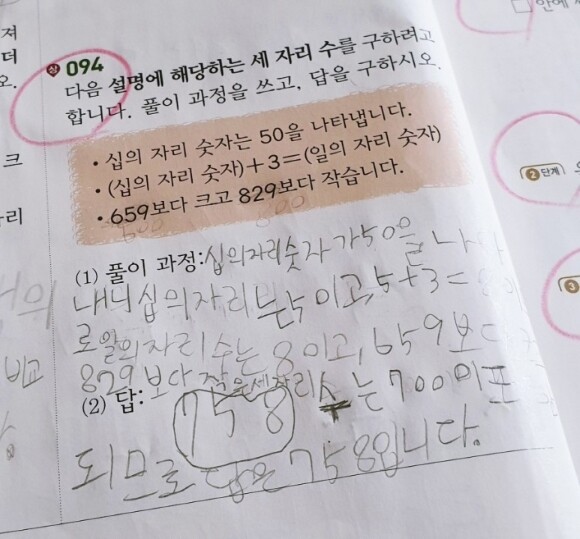 져
더
오.
크
리
비교
상 094
다음 설명에 해당하는 세 자리 수를 구하려고
합니다. 풀이 과정을 쓰고, 답을 구하시오.
• 십의 자리 숫자는 50을 나타냅니다.
• (십의 자리 숫자)+3=(일의 자리 숫자)
• 659보다 크고 829보다 작습니다.
(1) 풀이 과정: 십의자리숫자가 50을 나타
내니 십의자리는 5이고, 5+3=8이
로 일의자리 수는 8이고, 659보다
829보다 작은 세자리 수는 700이
(2) 답: 758
되므로 답은 758입니다.
안에
2 단계
3